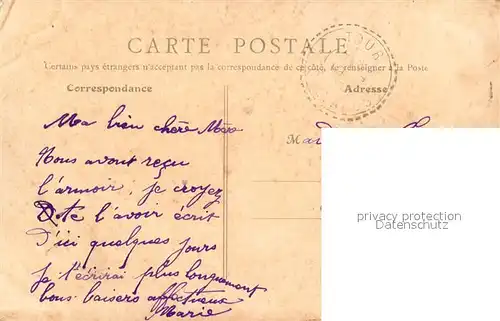 CARTE POSTALE
Certains pays étrangers n'acceptant pas la correspondance de ce côté, se renseigner à la Poste
Correspondance
Adresse
Ma bien chère Mère
Nous avont reçu
l'armoir, je croyez
De te l'avoir écrit
D'ici quelques jours
je t'écrirai plus longuement
bous baisers affectueux
Marie
TOUR
privacy protection
Datenschutz